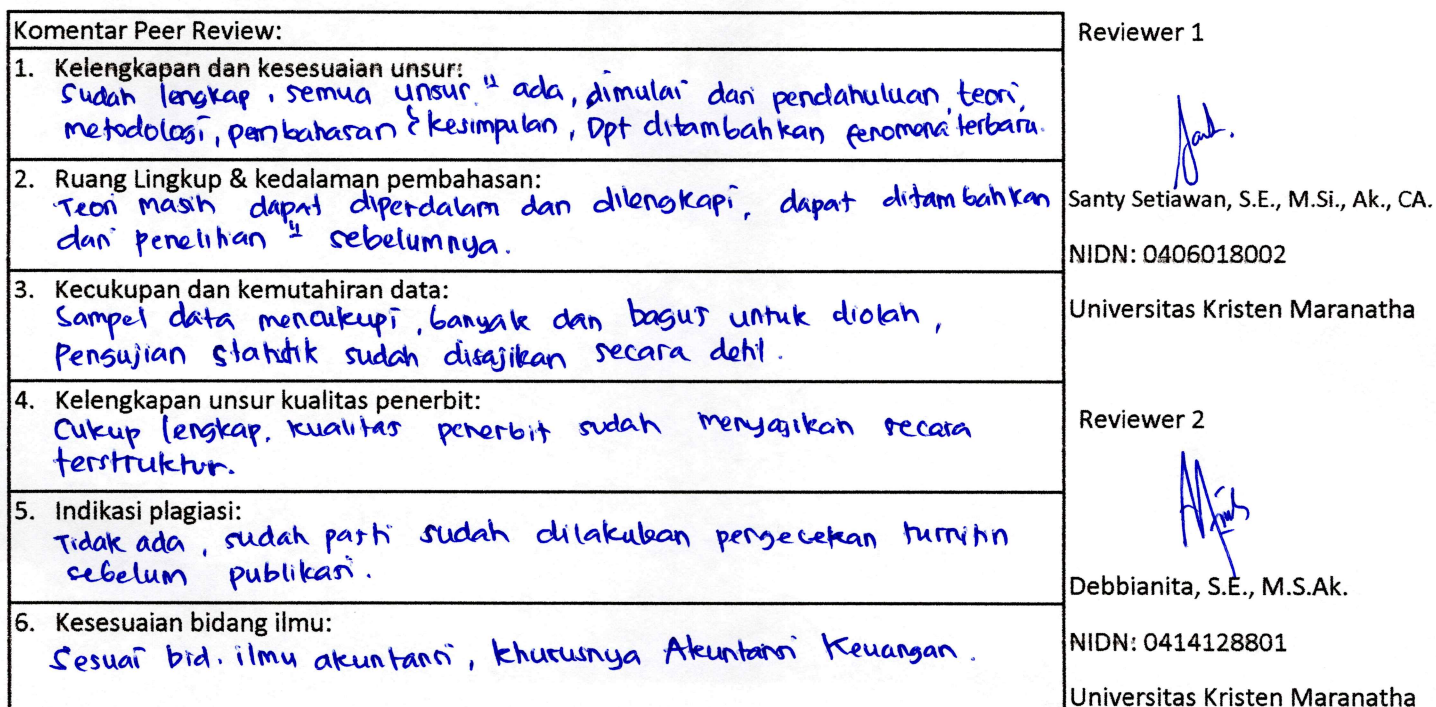 Komentar Peer Review:
1. Kelengkapan dan kesesuaian unsur:
Sudah lengkap, semua unsur" ada, dimulai dari pendahuluan, teori,
metodologi, pembahasan & kesimpulan, Dpt ditambahkan fenomena terbaru.
2. Ruang Lingkup & kedalaman pembahasan:
Teori masih dapat diperdalam dan dilengkapi, dapat ditambahkan
dari penelitian" sebelumnya.
3. Kecukupan dan kemutahiran data:
Sampel data mencukupi, banyak dan bagus untuk diolah,
Pengujian statistik sudah disajikan secara detil.
4. Kelengkapan unsur kualitas penerbit:
Cukup lengkap, kualitas penerbit sudah menyajikan secara
terstruktur.
5. Indikasi plagiasi:
Tidak ada, sudah pasti sudah dilakukan pengecekan turnitin
sebelum publikasi.
6. Kesesuaian bidang ilmu:
Sesuai bid. ilmu akuntansi, khususnya Akuntansi Keuangan.
Reviewer 1
Santy Setiawan, S.E., M.Si., Ak., CA.
NIDN: 0406018002
Universitas Kristen Maranatha
Reviewer 2
Debbianita, S.E., M.S.Ak.
NIDN: 0414128801
Universitas Kristen Maranatha